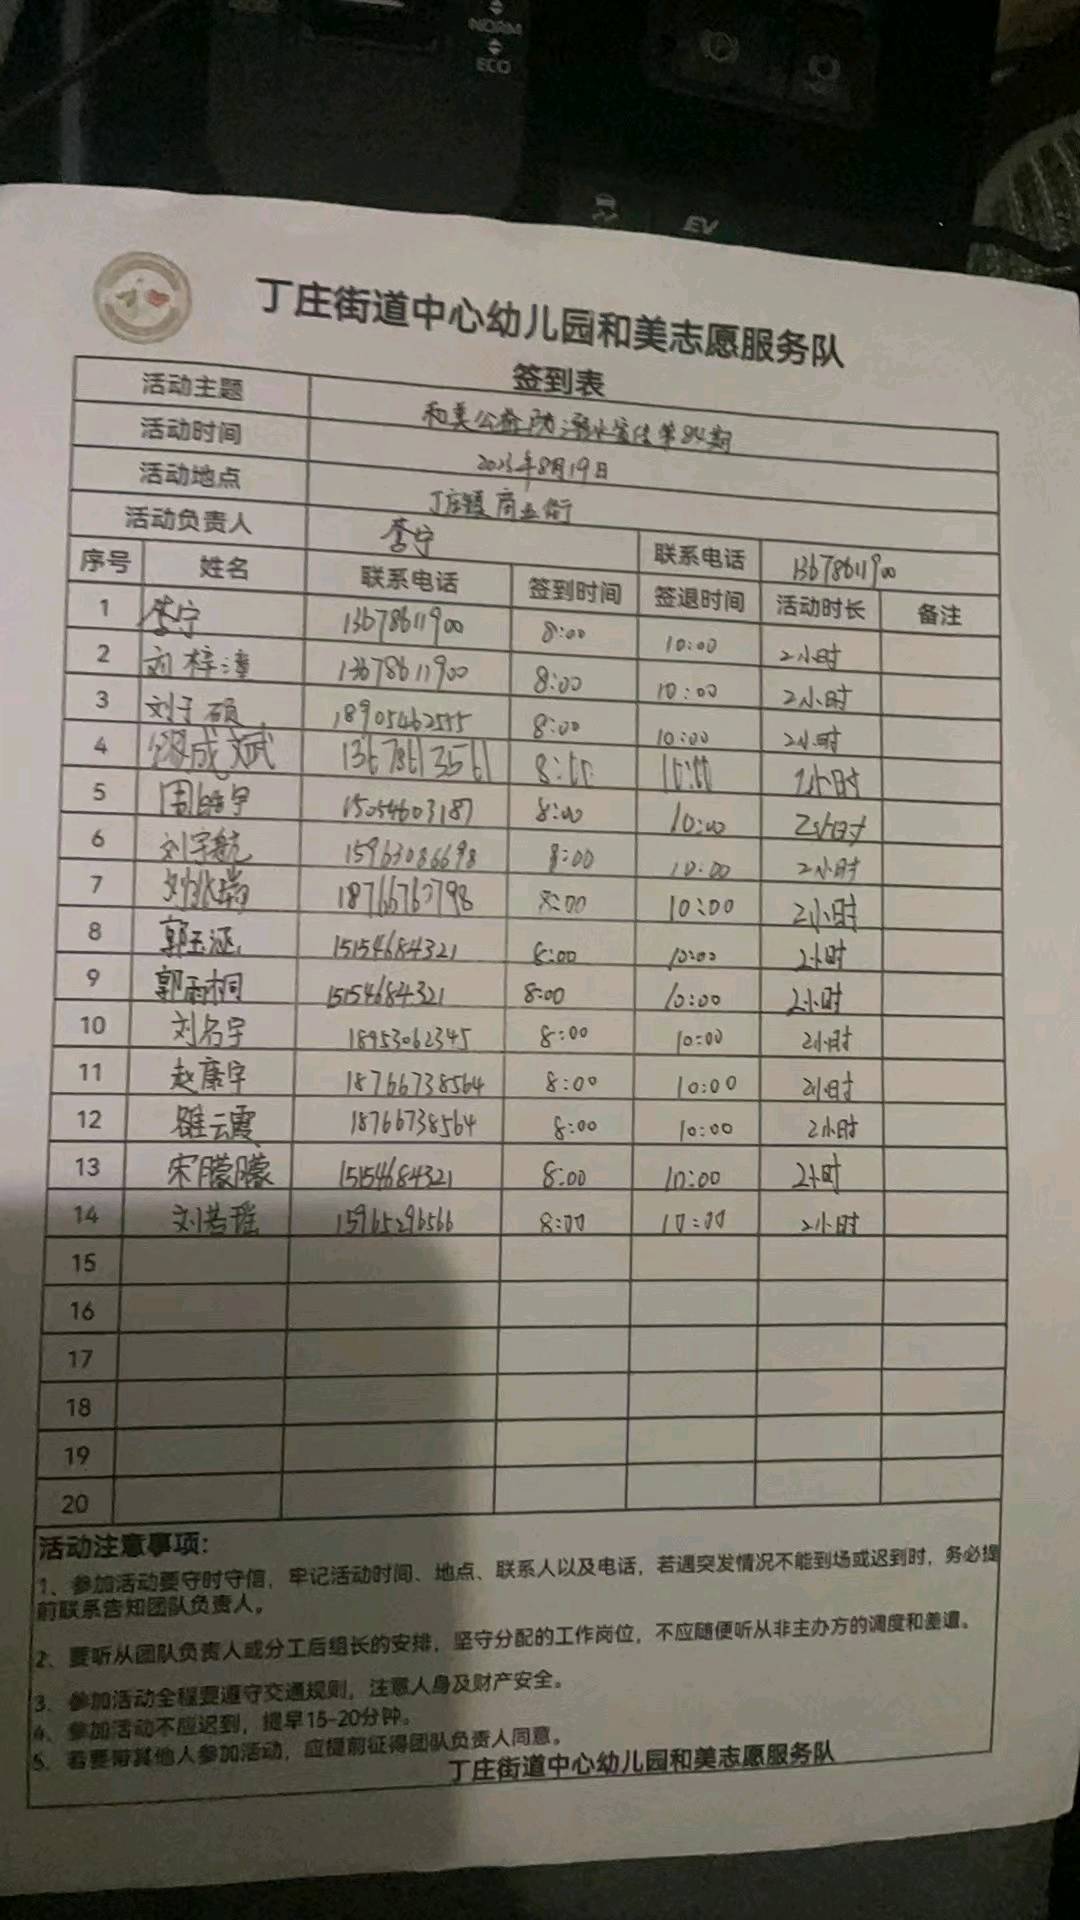 NORM
ECO
EV
丁庄街道中心幼儿园和美志愿服务队
签到表
活动主题 和美公益防溺水宣传第84期
活动时间 2023年8月19日
活动地点 丁庄镇商业街
活动负责人 李宁 联系电话 13678611900
序号 姓名 联系电话 签到时间 签退时间 活动时长 备注
1 李宁 13678611900 8:00 10:00 2小时
2 刘梓潼 13678611900 8:00 10:00 2小时
3 刘子硕 18905462555 8:00 10:00 2小时
4 成文武 13678613561 8:00 10:00 2小时
5 周皓宇 15054603187 8:00 10:00 2小时
6 刘宇航 15963086698 8:00 10:00 2小时
7 刘兆瑞 18766763798 8:00 10:00 2小时
8 郭玉涵 15154684321 8:00 10:00 2小时
9 郭雨桐 15154684321 8:00 10:00 2小时
10 刘名宇 18953062345 8:00 10:00 2小时
11 赵康宇 18766738564 8:00 10:00 2小时
12 云霞 18766738564 8:00 10:00 2小时
13 宋朦朦 15154684321 8:00 10:00 2小时
14 刘若瑶 15965296566 8:00 10:00 2小时
15
16
17
18
19
20
活动注意事项:
1、参加活动要守时守信，牢记活动时间、地点、联系人以及电话，若遇突发情况不能到场或迟到时，务必提
前联系告知团队负责人。
2、要听从团队负责人或分工后组长的安排，坚守分配的工作岗位，不应随便听从非主办方的调度和差遣。
3、参加活动全程要遵守交通规则，注意人身及财产安全。
4、参加活动不应迟到，提早15-20分钟。
5、若要带其他人参加活动，应提前征得团队负责人同意。
丁庄街道中心幼儿园和美志愿服务队